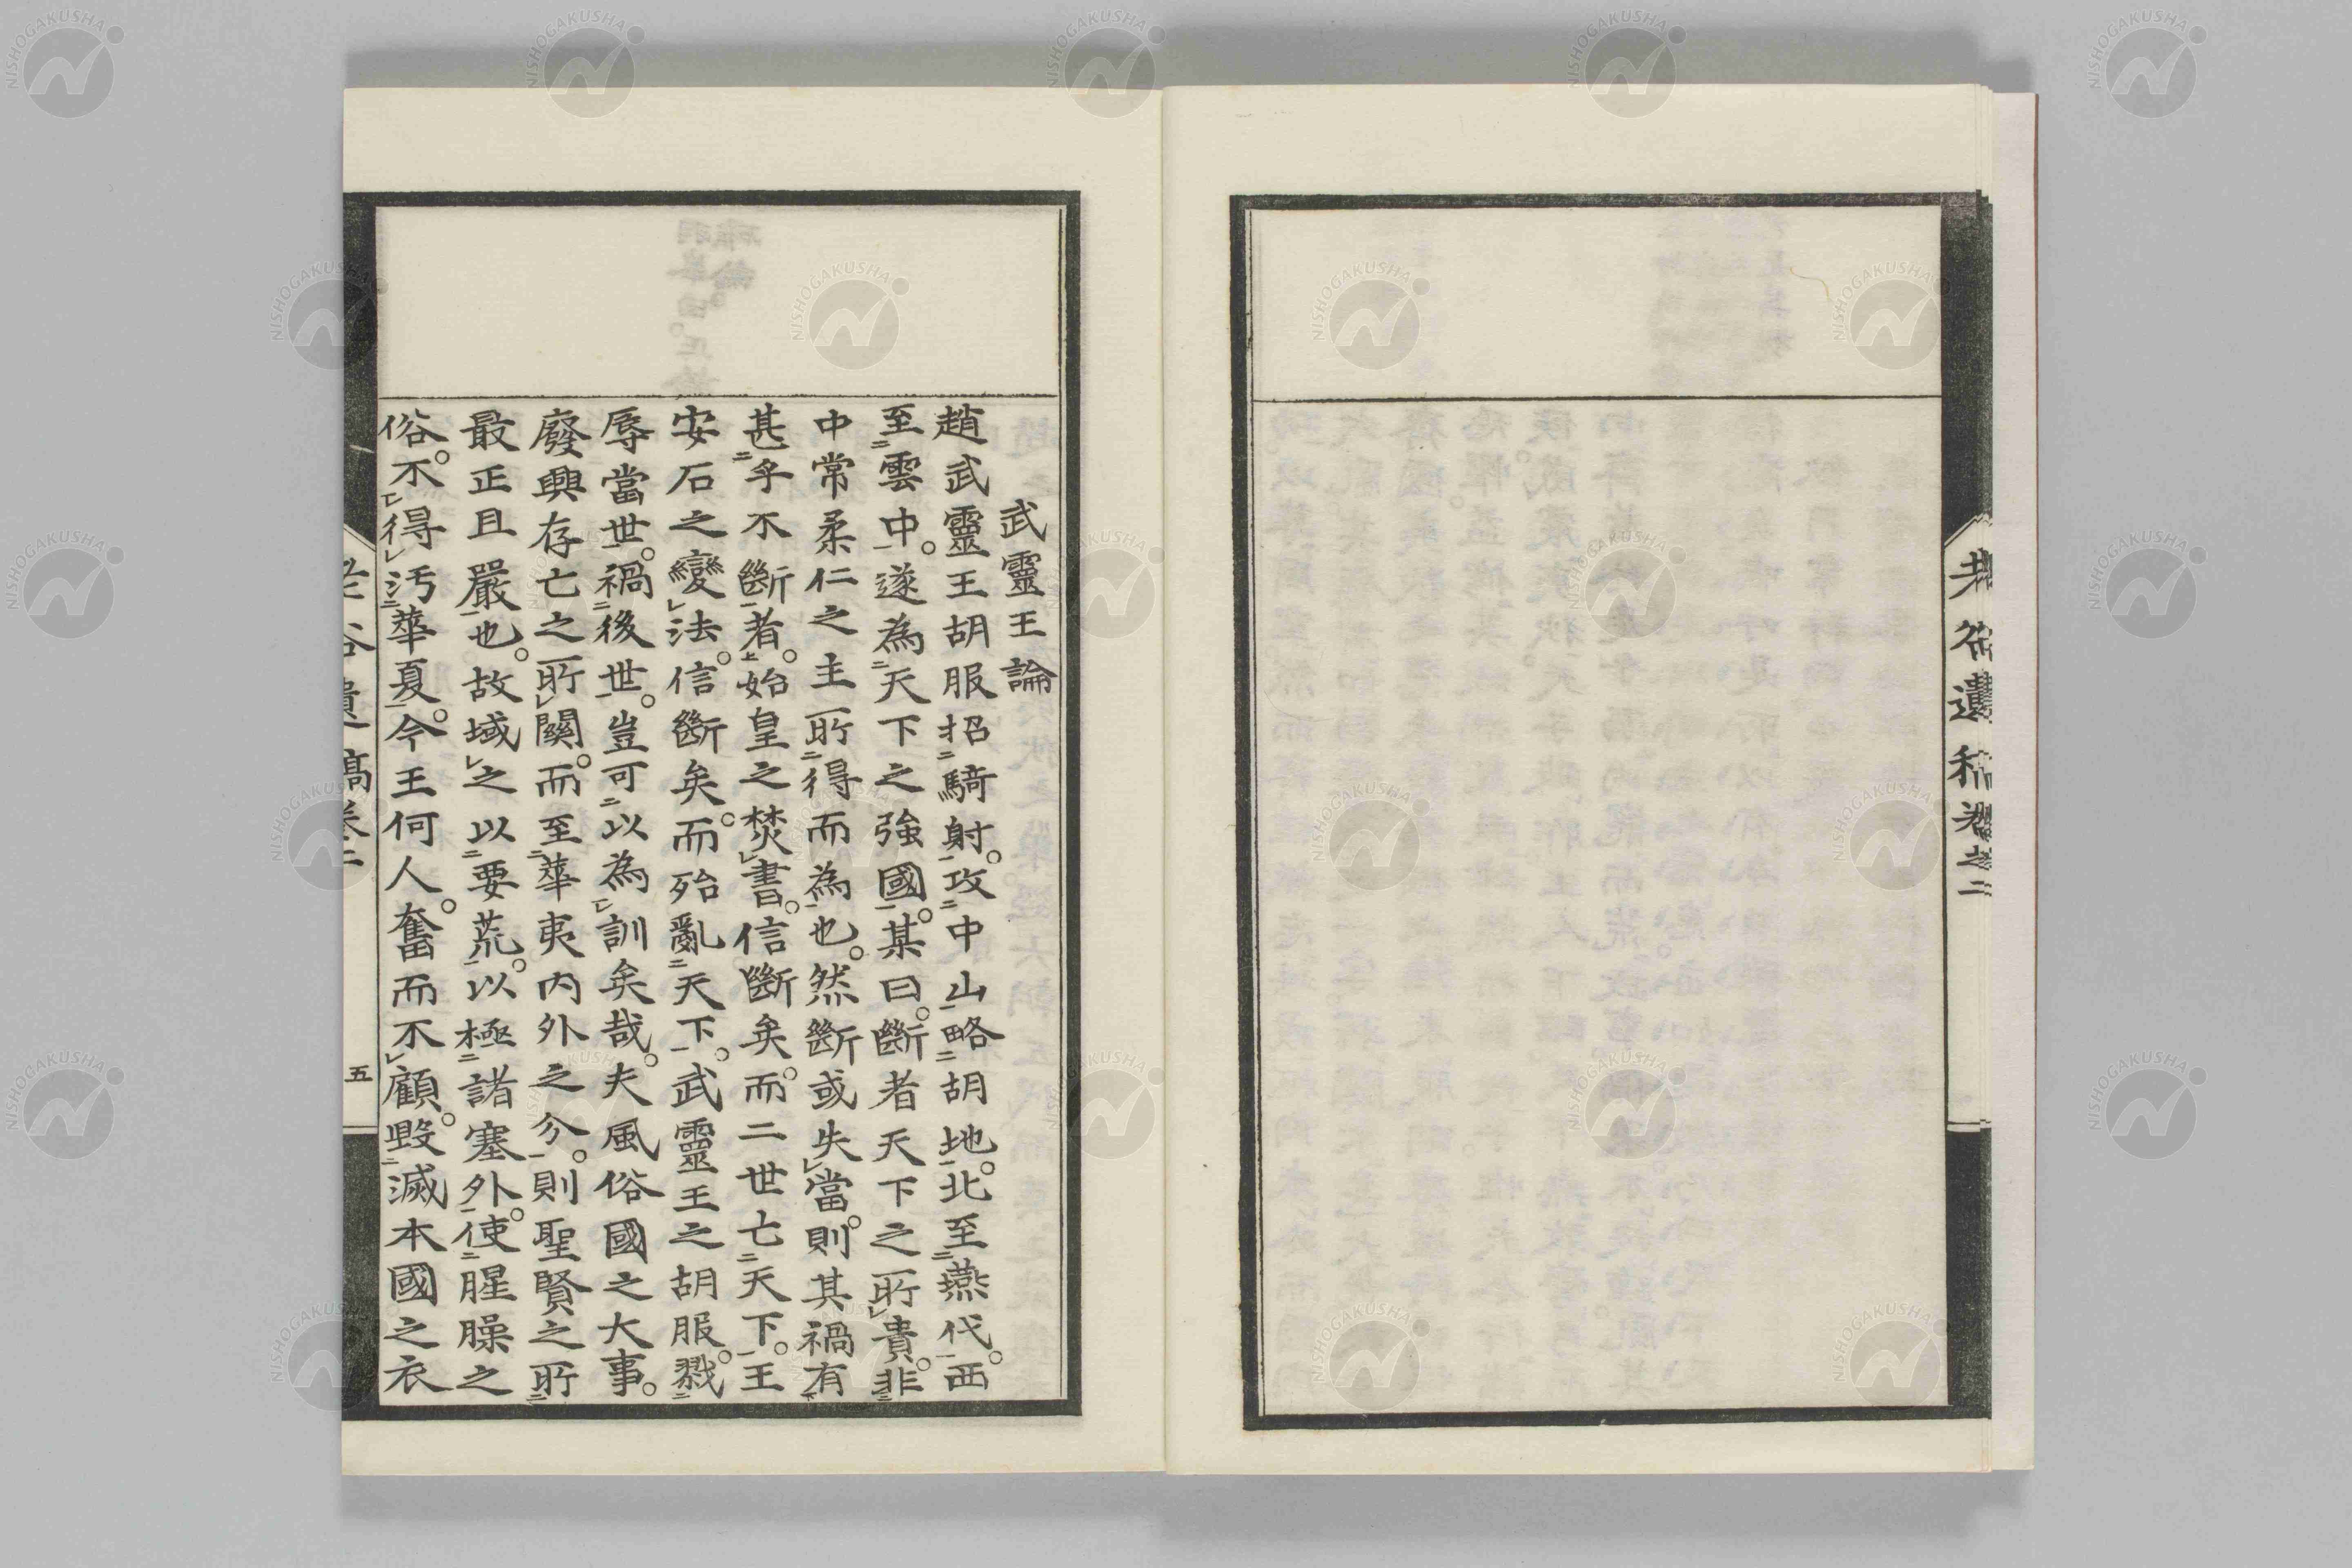 武靈王論
趙武靈王胡服招騎射。攻中山略胡地。北至燕代。西
至雲中。遂為天下之強國。某曰。斷者天下之所貴。非
中常柔仁之主所得而為也。然斷或失當。則其禍有
甚乎不斷者。始皇之焚書。信斷矣。而二世亡天下。王
安石之變法。信斷矣。而殆亂天下。武靈王之胡服。戮
辱當世。禍後世。豈可以為訓矣哉。夫風俗國之大事。
廢興存亡之所關。而至華夷內外之分。則聖賢之所
最正且嚴也。故域之以要荒。以極諸塞外。使腥臊之
俗。不得汚華夏。今王何人。奮而不顧。毀滅本國之衣
五
NISHOGAKUSHA